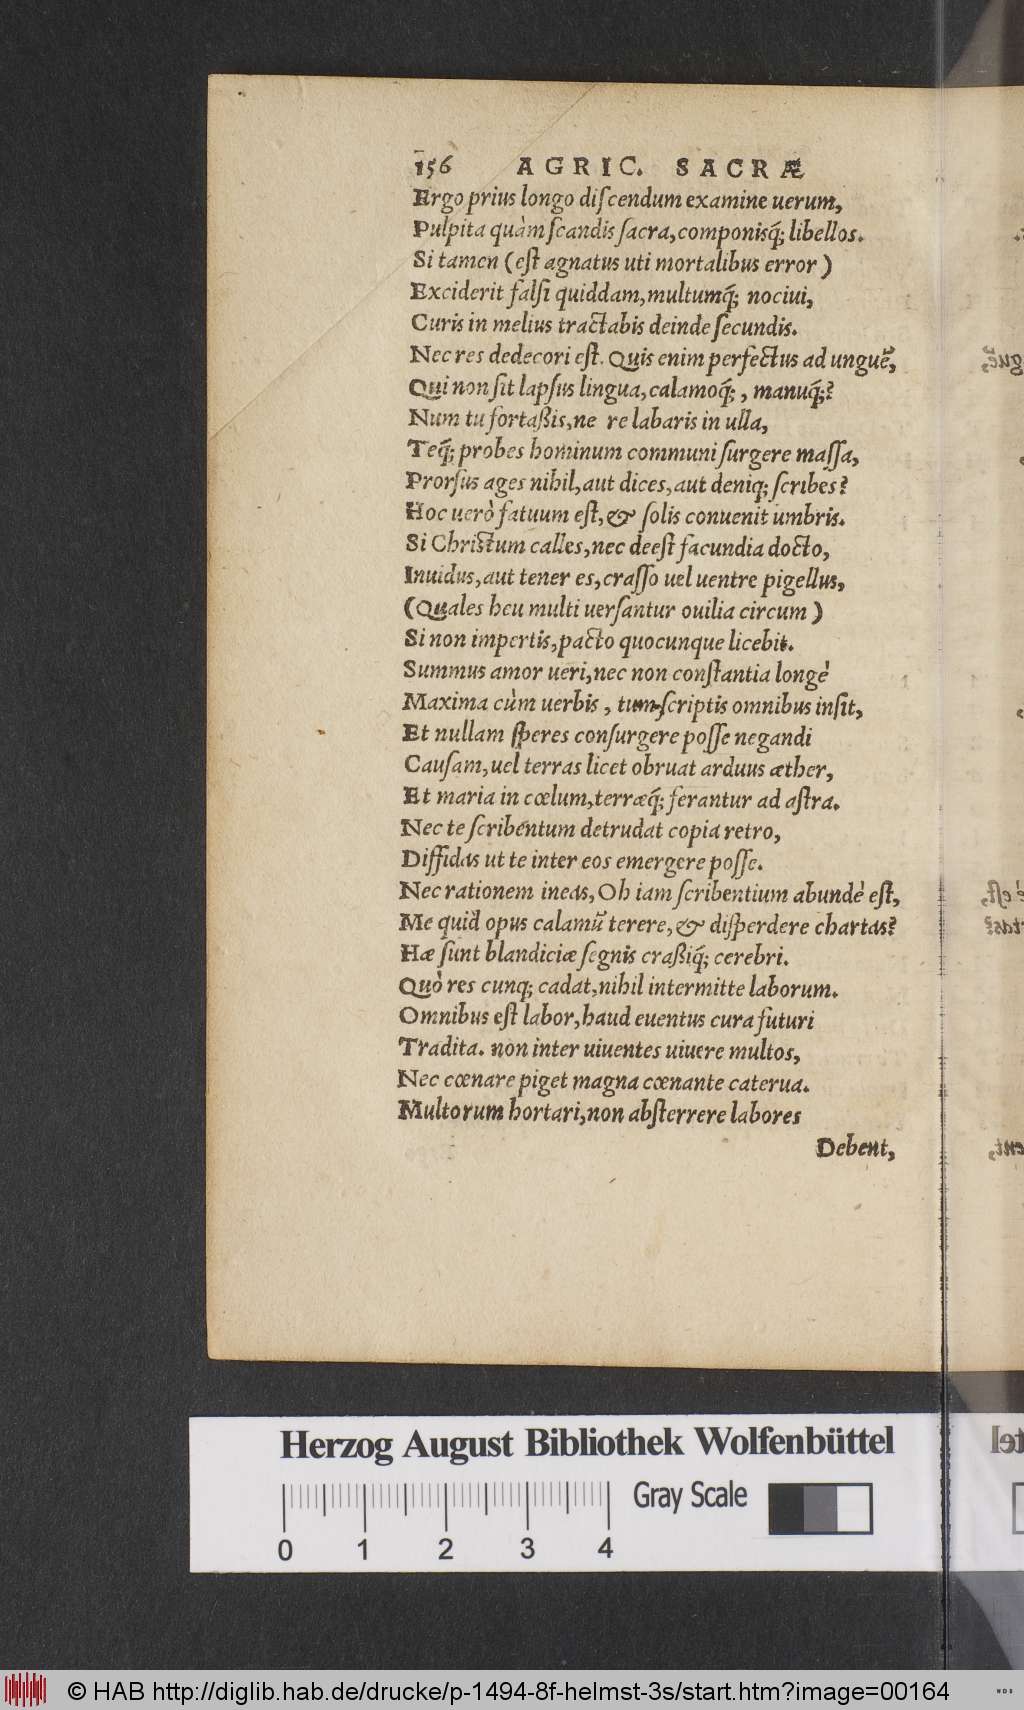 156 AGRIC. SACRÆ
Ergo prius longo diſcendum examine uerum,
Pulpita quàm ſcandis ſacra, componisq́; libellos.
Si tamen (eſt agnatus uti mortalibus error)
Exciderit falſi quiddam, multumq́; nociui,
Curis in melius tractabis deinde ſecundis.
Nec res dedecori eſt. Quis enim perfectus ad unguẽ,
Qui non ſit lapſus lingua, calamoq́;, manuq́;?
Num tu fortaßis, ne re labaris in ulla,
Teq́; probes hominum communi ſurgere maſſa,
Prorſus ages nihil, aut dices, aut deniq; ſcribes?
Hoc uerò fatuum eſt, & ſolis conuenit umbris.
Si Chriſtum calles, nec deeſt facundia docto,
Inuidus, aut tener es, craſſo uel uentre pigellus,
(Quales heu multi uerſantur ouilia circum)
Si non impertis, pacto quocunque licebit.
Summus amor ueri, nec non conſtantia longè
Maxima cùm uerbis, tum ſcriptis omnibus inſit,
Et nullam ſperes conſurgere poſſe negandi
Cauſam, uel terras licet obruat arduus æther,
Et maria in cœlum, terræq́; ferantur ad aſtra.
Nec te ſcribentum detrudat copia retro,
Diffidas ut te inter eos emergere poſſe.
Nec rationem ineas, Oh iam ſcribentium abundè eſt,
Me quid opus calamũ terere, & diſperdere chartas?
Hæ ſunt blandiciæ ſegnis craßiq́; cerebri.
Quò res cunq; cadat, nihil intermitte laborum.
Omnibus eſt labor, haud euentus cura futuri
Tradita. non inter uiuentes uiuere multos,
Nec cœnare piget magna cœnante caterua.
Multorum hortari, non abſterrere labores
Debent,
Herzog August Bibliothek Wolfenbüttel
Gray Scale
0 1 2 3 4
© HAB http://diglib.hab.de/drucke/p-1494-8f-helmst-3s/start.htm?image=00164